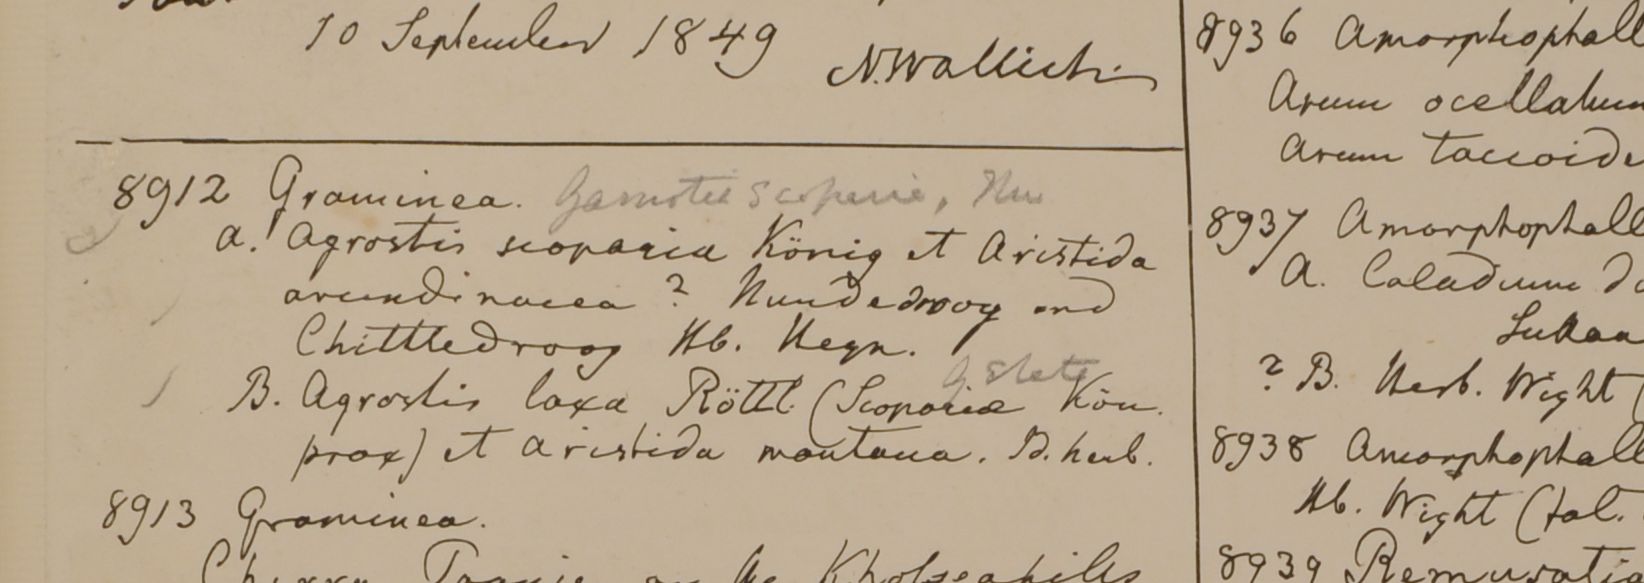 10 September 1849
N. Wallich
8912 Graminea.
a. Agrostis scoparia König et Aristida
arundinacea ? Nundedroog and
Chittledroog Hb. Heyn.
B. Agrostis laxa Röttl. (Scopariæ Kön.
prox) et Aristida montana. B. herb.
8913 Graminea.
8936 Amorphophall
Arum ocellatum
Arum taccoide
8937 Amorphophall
A. Caladium
? B. Herb. Wight (
8938 Amorphophall
Hb. Wight (
8939 Remusatia